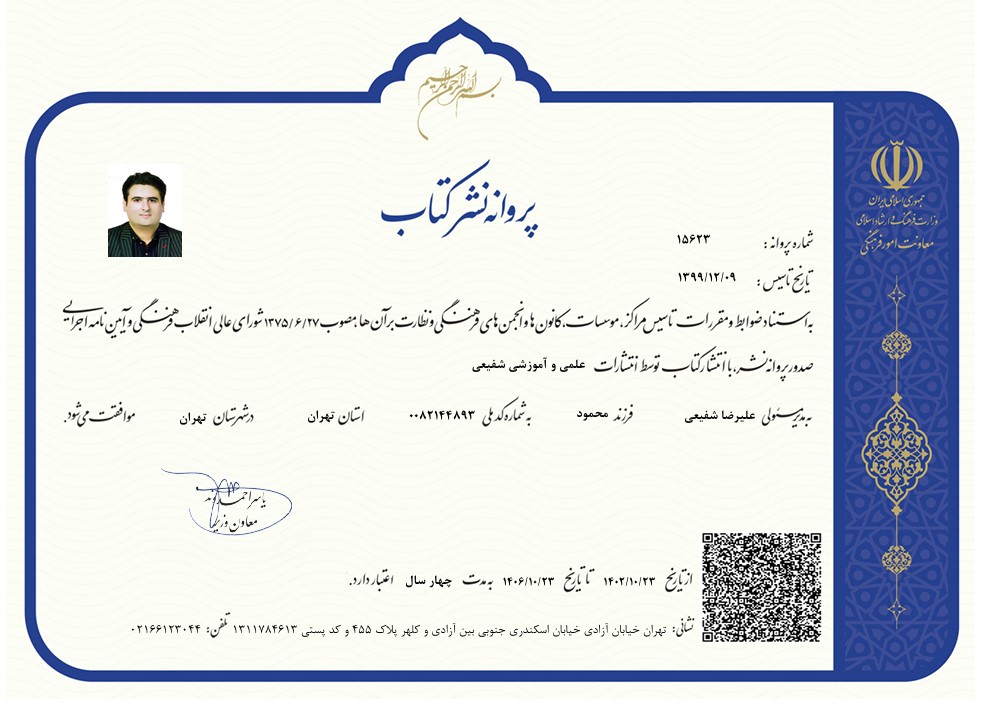 بسم الله الرحمن الرحیم
جمهوری اسلامی ایران
وزارت فرهنگ و ارشاد اسلامی
معاونت امور فرهنگی
پروانه نشر کتاب
شماره پروانه: ۱۵۶۲۳
تاریخ تاسیس: ۱۳۹۹/۱۲/۰۹
به استناد ضوابط و مقررات تاسیس مراکز، موسسات، کانون ها و انجمن های فرهنگی و نظارت بر آن ها، مصوب ۱۳۷۵/۶/۲۷ شورای عالی انقلاب فرهنگی و آیین نامه اجرایی
صدور پروانه نشر، با انتشار کتاب توسط انتشارات علمی و آموزشی شفیعی
به مدیر مسئولی علیرضا شفیعی فرزند محمود به شماره کد ملی ۰۰۸۲۱۴۴۸۹۳ استان تهران در شهرستان تهران موافقت می شود.
یاسر احمدوند
معاون وزیر
از تاریخ ۱۴۰۲/۱۰/۲۳ تا تاریخ ۱۴۰۶/۱۰/۲۳ به مدت چهار سال اعتبار دارد.
نشانی: تهران خیابان آزادی خیابان اسکندری جنوبی بین آزادی و کلهر پلاک ۴۵۵ و کد پستی ۱۳۱۱۷۸۴۶۱۳ تلفن: ۰۲۱۶۶۱۲۳۰۴۴